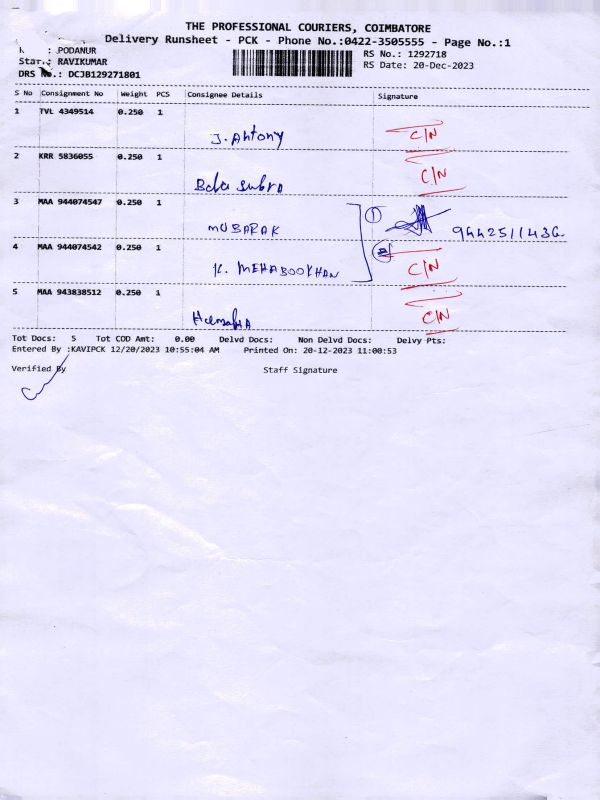 THE PROFESSIONAL COURIERS, COIMBATORE
Delivery Runsheet - PCK - Phone No.:0422-3505555 - Page No.:1
: PODANUR
RS No.: 1292718
Staff: RAVIKUMAR
RS Date: 20-Dec-2023
DRS No.: DCJB129271801
S No Consignment No Weight PCS Consignee Details Signature
1 TVL 4349514 0.250 1
J. Antony C/N
2 KRR 5836055 0.250 1
Bala Subra C/N
3 MAA 944074547 0.250 1
MUBARAK 1 9442511436
4 MAA 944074542 0.250 1 2
K. MEHABOOKHAN C/N
5 MAA 943838512 0.250 1
C/N
Tot Docs: 5 Tot COD Amt: 0.00 Delvd Docs: Non Delvd Docs: Delvy Pts:
Entered By :KAVIPCK 12/20/2023 10:55:04 AM Printed On: 20-12-2023 11:00:53
Verified By Staff Signature